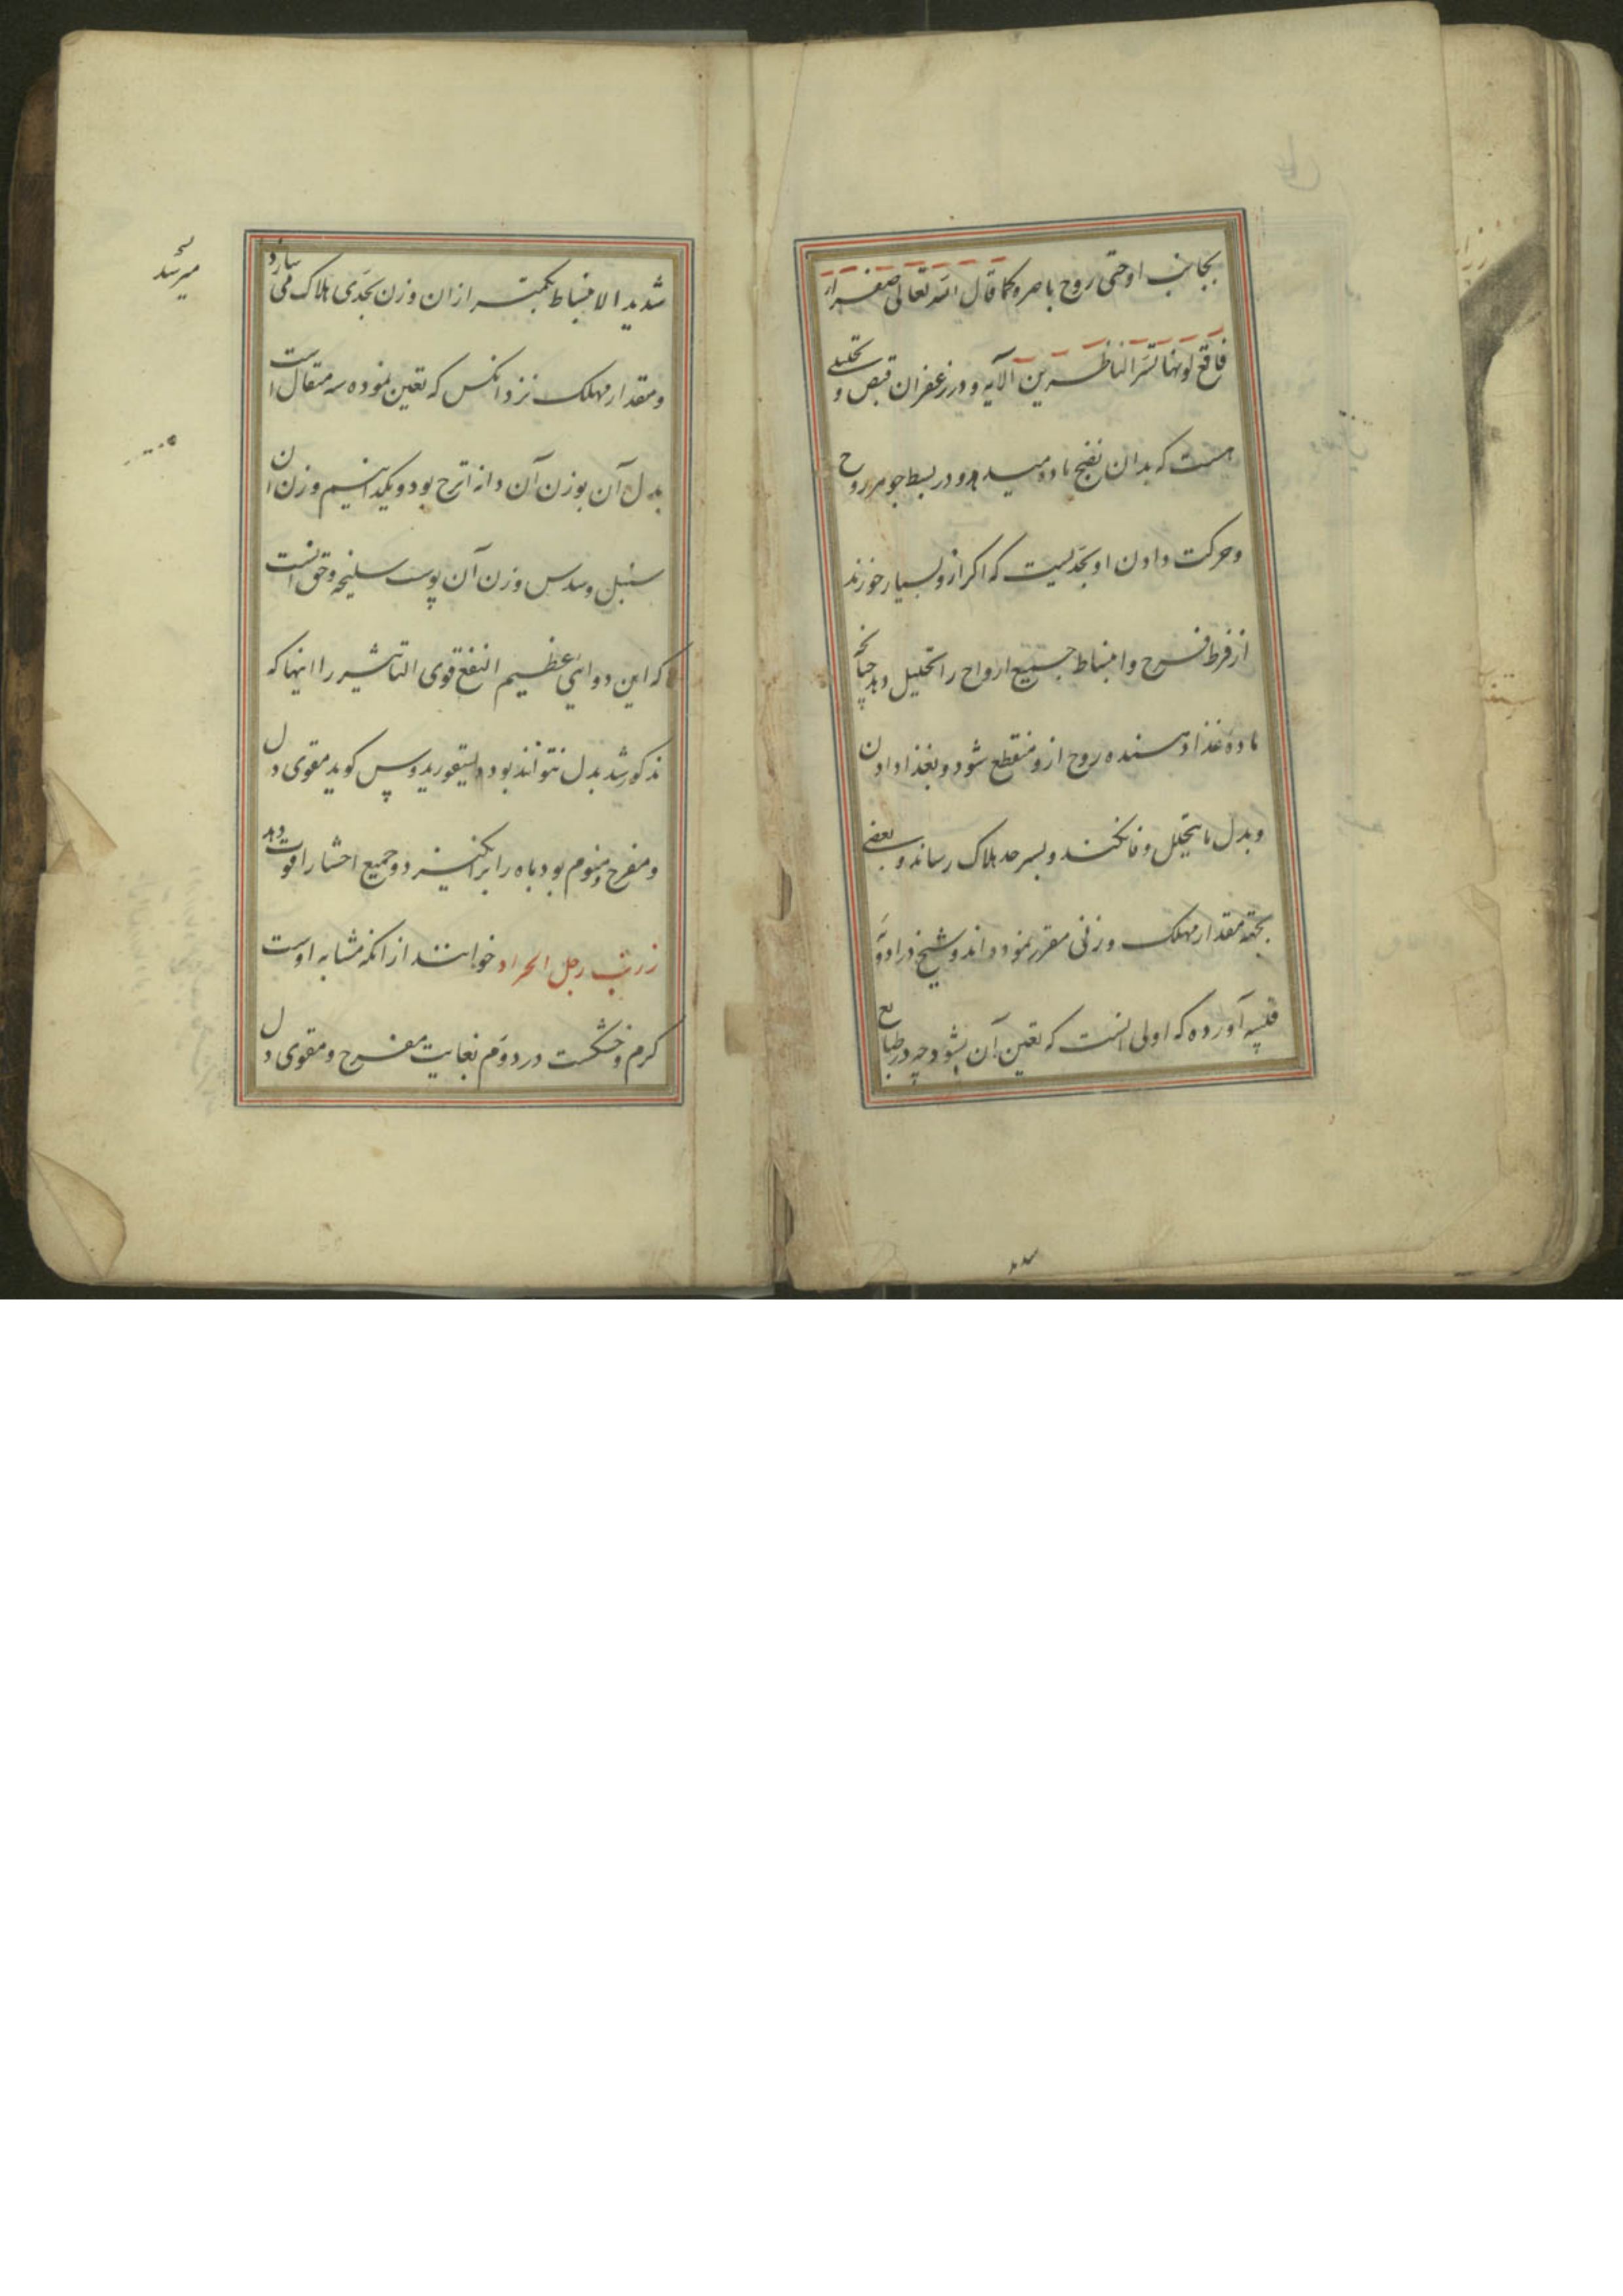 بجانب او حتی روح باصره کما قال الله تعالی صفراء
فاقع لونها تسر الناظرین الآیه و در زعفران قبض و تحلیلی
هست که بدان نضج ماده میدهد و در بسط جوهر روح
و حرکت دادن او بحدیست که اکر ازو بسیار خورند
از فرط فرح و انبساط جمیع ارواح را تحلیل دهد چنانچه
ماده غذا دهنده روح ازو منقطع شود و بغذا دادن
و بدل ما یتحلل وفا نکند و بسرحد هلاک رساند و بعضی
بجهة مقدار مهلک وزنی مقرر نموده اند و شیخ در ادویه
قلبیه آورده که اولی انست که تعین آن نشود چه در طبایع
شدید الانبساط بکمتر از ان وزن بحدی هلاک می
و مقدار مهلک نزد انکس که تعین نموده سه مثقال است
بدل آن بوزن آن دانه اترج بود و یکدانیم وزن ان
سنبل و سدس وزن آن پوست سلیخه و حق انست
که این دوای عظیم النفع قوی التاثیر را اینها که
مذکور شد بدل نتوانند بود دیسقوریدوس کوید مقوی دل
و مفرح و منوم بود باه را برانکیزد و جمیع احشا را قوت دهد
زرنب رجل الجراد خوانند از انکه مشابه اوست
کرم و خشکست در دوم بغایت مفرح و مقوی دل